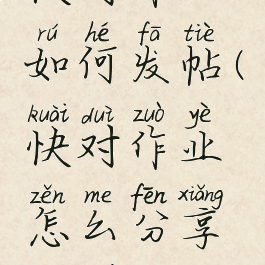 rú hé fā tiè
如何发帖(
kuài duì zuò yè
快对作业
zěn me fēn xiǎng
怎么分享